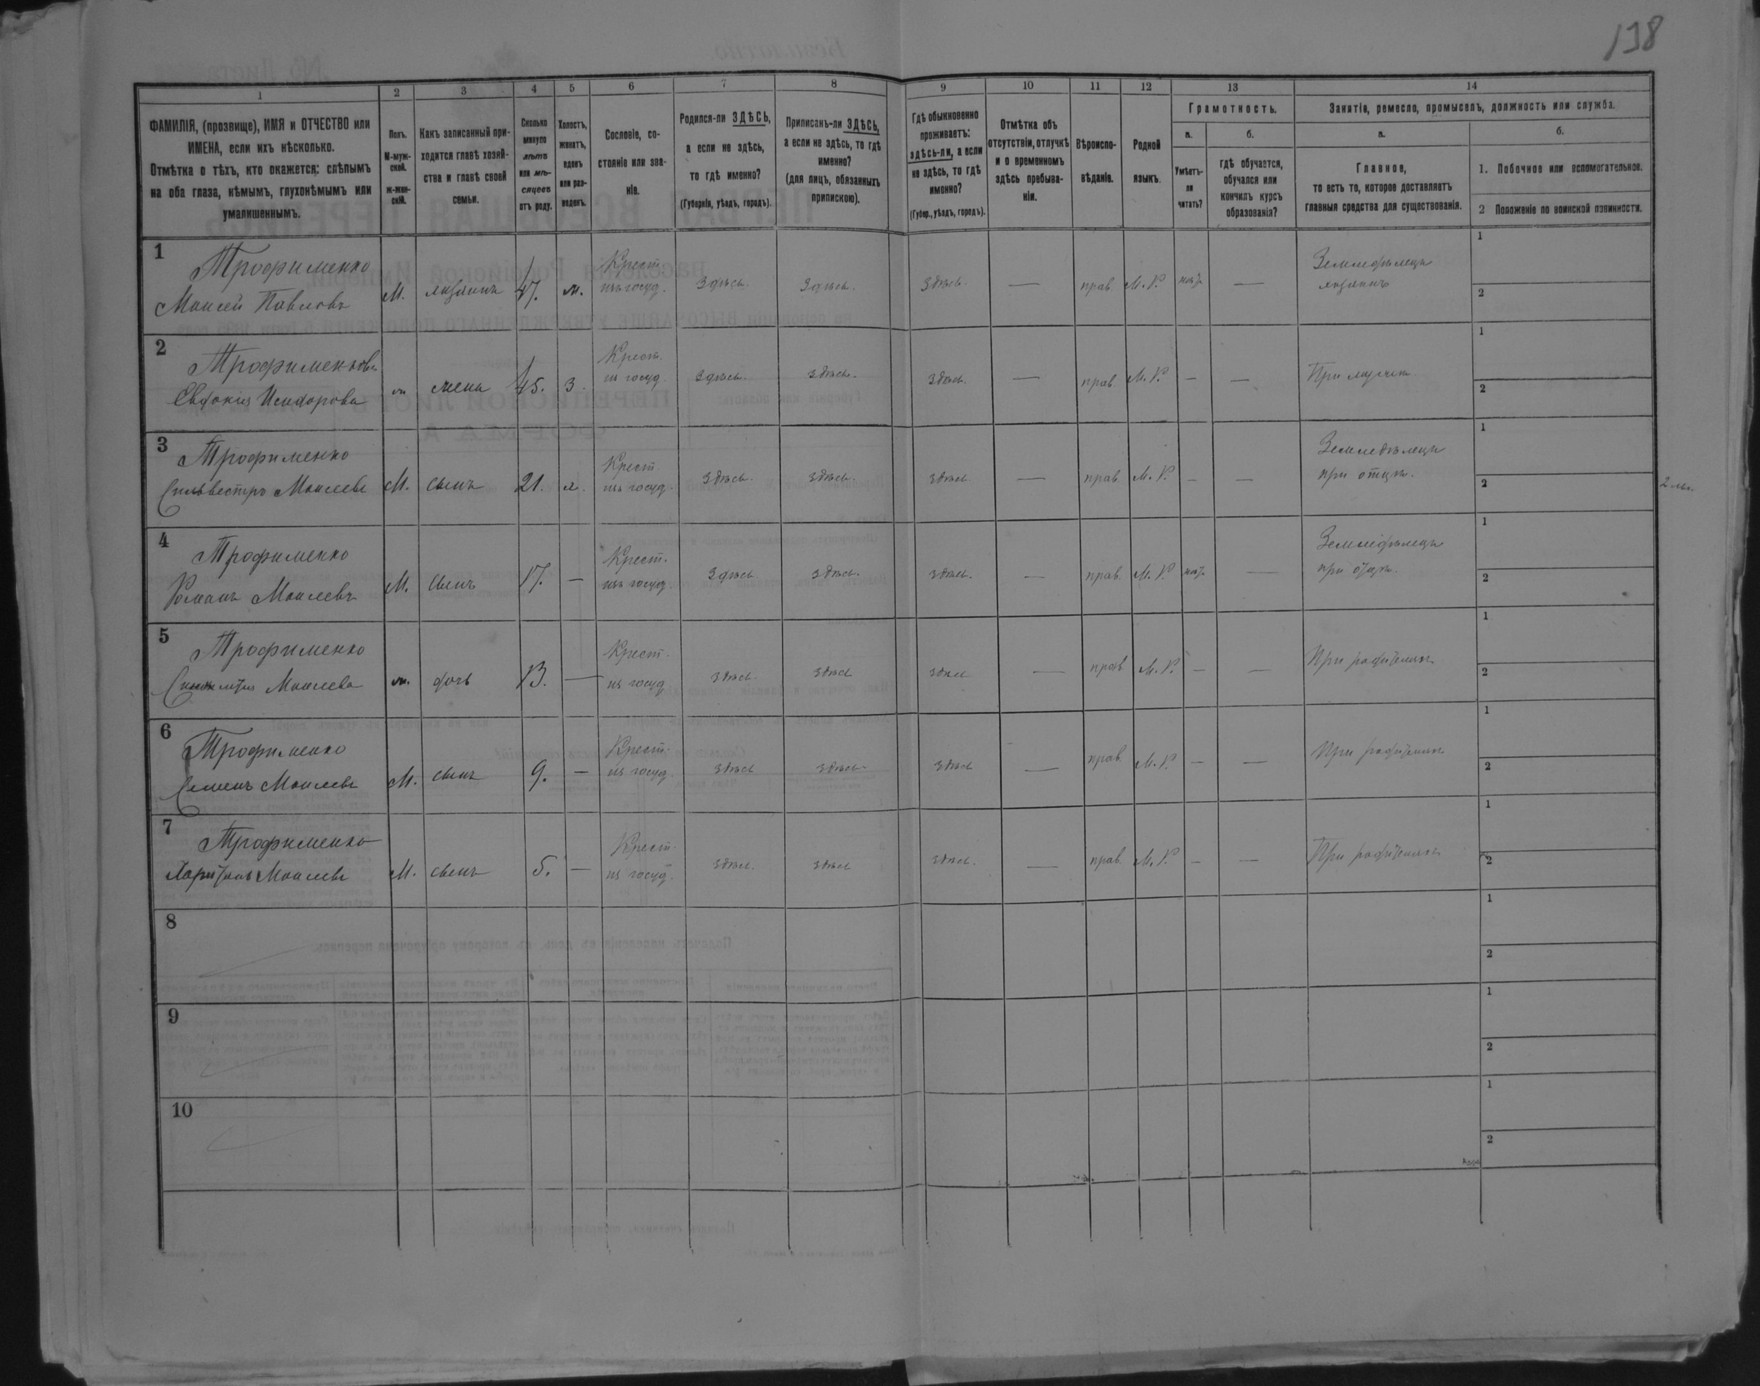 138
1 2 3 4 5 6 7 8 9 10 11 12 13 14
ФАМИЛІЯ, (прозвище), ИМЯ и ОТЧЕСТВО или
ИМЕНА, если ихъ нѣсколько.
Отмѣтка о тѣхъ, кто окажется: слѣпымъ
на оба глаза, нѣмымъ, глухонѣмымъ или
умалишеннымъ.
Полъ.
М-муж-
ской.
ж-жен-
скій.
Какъ записанный при-
ходится главѣ хозяй-
ства и главѣ своей
семьи.
Сколько
минуло
лѣтъ
или мѣ-
сяцевъ
отъ роду.
Холостъ,
женатъ,
вдовъ
или раз-
веденъ.
Сословіе, со-
стояніе или зва-
ніе.
Родился-ли ЗДѢСЬ,
а если не здѣсь,
то гдѣ именно?
(Губернія, уѣздъ, городъ).
Приписанъ-ли ЗДѢСЬ,
а если не здѣсь, то гдѣ
именно?
(для лицъ, обязанныхъ
припискою).
Гдѣ обыкновенно
проживаетъ:
здѣсь-ли, а если
не здѣсь, то гдѣ
именно?
(Губер., уѣздъ, городъ).
Отмѣтка объ
отсутствіи, отлучкѣ
и о временномъ
здѣсь пребыва-
ніи.
Вѣроиспо-
вѣданіе.
Родной
языкъ.
Грамотность.
а.
Умѣетъ-
ли
читать?
б.
гдѣ обучается,
обучался или
кончилъ курсъ
образованія?
Занятія, ремесло, промыселъ, должность или служба.
а.
Главное,
то есть то, которое доставляетъ
главныя средства для существованія.
б.
1. Побочное или вспомогательное.
2 Положеніе по воинской повинности.
1 Трофименко
Моисей Павловъ М. хозяинъ 47. ж. Крест.
изъ госуд. Здѣсь. Здѣсь. Здѣсь. — прав М. Р. — Земледѣлецъ
хозяинъ 1
2
2 Трофименкова
Евдокія Исидорова ж жена 45. З. Крест.
из госуд. Здѣсь. здѣсь. здѣсь. — прав М. Р. — — При мужѣ 1
2
3 Трофименко
Сильвестръ Моисеевъ М. сынъ 21. Крест.
изъ госуд. здѣсь. здѣсь. здѣсь — прав М. Р. — — Земледѣлецъ
при отцѣ. 1
2
2
4 Трофименко
Романъ Моисеевъ М. сынъ 17. — Крест.
изъ госуд. Здѣсь здѣсь. здѣсь. — прав. М. Р. — Земледѣлецъ
при отцѣ. 1
2
5 Трофименко
Моисеева ж. дочь 13. — Крест.
из госуд. здѣсь. здѣсь здѣсь — прав М. Р. — — При родителяхъ 1
2
6 Трофименко
Семенъ Моисеевъ М. сынъ 9. — Крест.
из госуд. здѣсь здѣсь здѣсь — прав. М. Р. — — При родителяхъ 1
2
7 Трофименко
Харитонъ Моисеевъ М. сынъ 5. — Крест.
из госуд. здѣсь. здѣсь здѣсь. — прав. М. Р. — — При родителяхъ 1
2
8 1
2
9 1
2
10 1
2